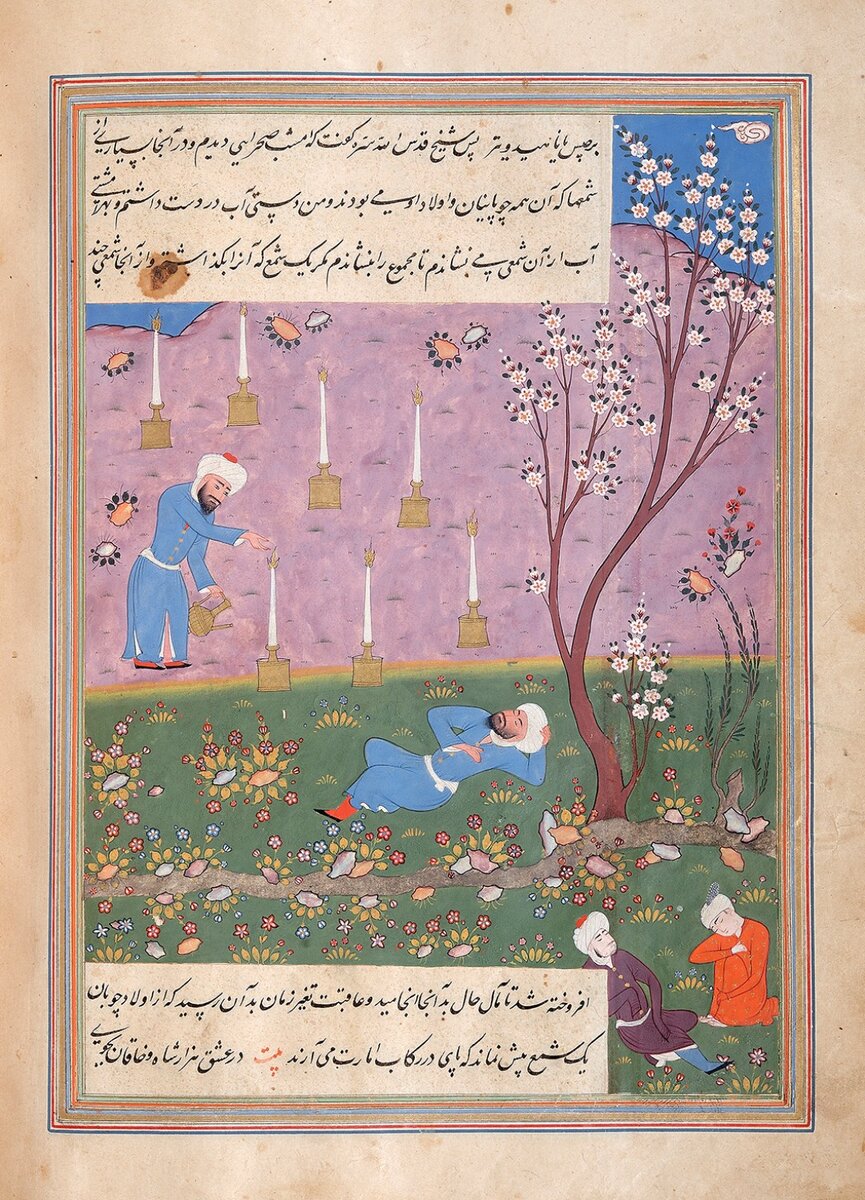 برجیس یا ناهید و تیر پس شیخ قدس الله سره گفت که امشب صحرایی دیدم و در آنجا بسیاری از
شمعها که آن همه چوپانیان و اولاد اویمی بودند و من دستی آب در دست داشتم و بهر مشتی
آب از آن شمعی می نشاندم تا مجموع را بنشاندم مگر یک شمع که آنرا بگذاشتم و از آنجا شمعی چند
افروخته شد تا مآل حال بدآنجا انجامید و عاقبت تغیر زمان بدآن رسید که از اولاد چوبان
یک شمع بیش نماند که پای در رکاب امارت می آرند بیت در عشق هزار شاه و خاقان بجویی